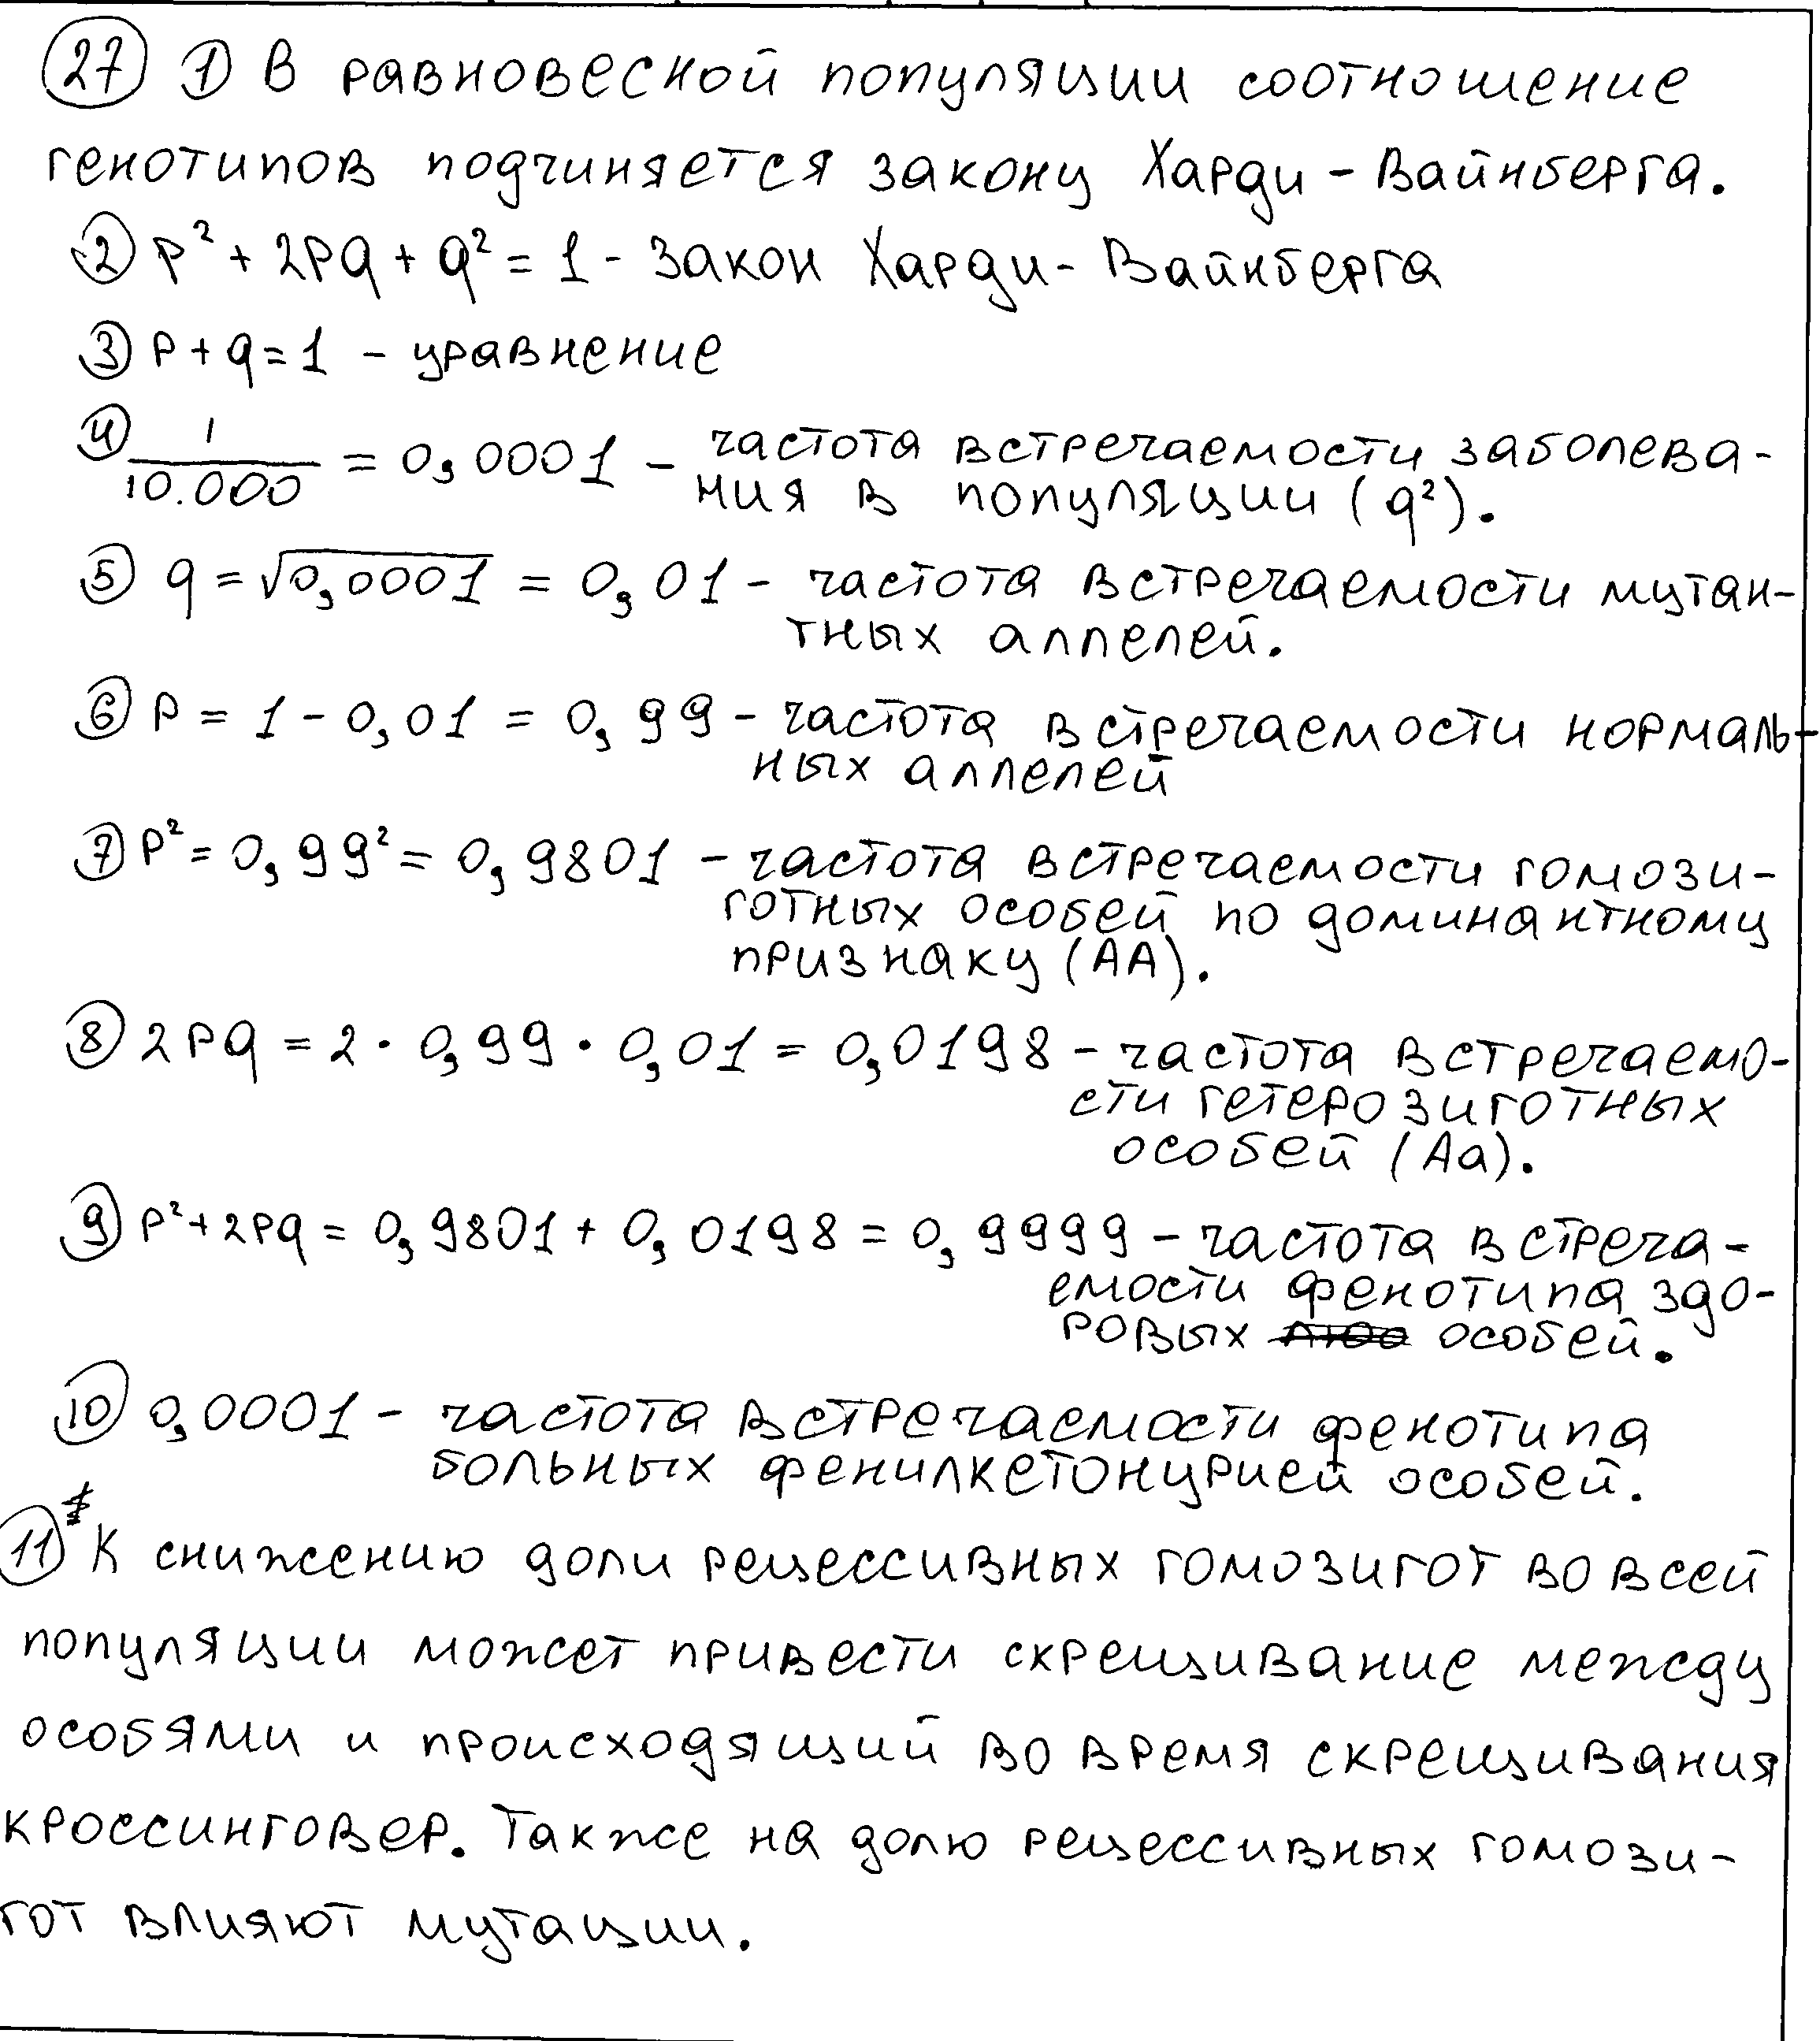 27 1) В равновесной популяции соотношение
генотипов подчиняется закону Харди - Вайнберга.
2) p² + 2pq + q² = 1 - закон Харди - Вайнберга
3) p + q = 1 - уравнение
4) 1/10.000 = 0,0001 - частота встречаемости заболева-
ния в популяции (q²).
5) q = √0,0001 = 0,01 - частота встречаемости мутан-
тных аллелей.
6) p = 1 - 0,01 = 0,99 - частота встречаемости нормаль-
ных аллелей
7) p² = 0,99² = 0,9801 - частота встречаемости гомози-
готных особей по доминантному
признаку (АА).
8) 2pq = 2 · 0,99 · 0,01 = 0,0198 - частота встречаемо-
сти гетерозиготных
особей (Аа).
9) p² + 2pq = 0,9801 + 0,0198 = 0,9999 - частота встреча-
емости фенотипа здо-
ровых особей.
10) 0,0001 - частота встречаемости фенотипа
больных фенилкетонурией особей.
11) К снижению доли рецессивных гомозигот во всей
популяции может привести скрещивание между
особями и происходящий во время скрещивания
кроссинговер. Также на долю рецессивных гомози-
гот влияют мутации.